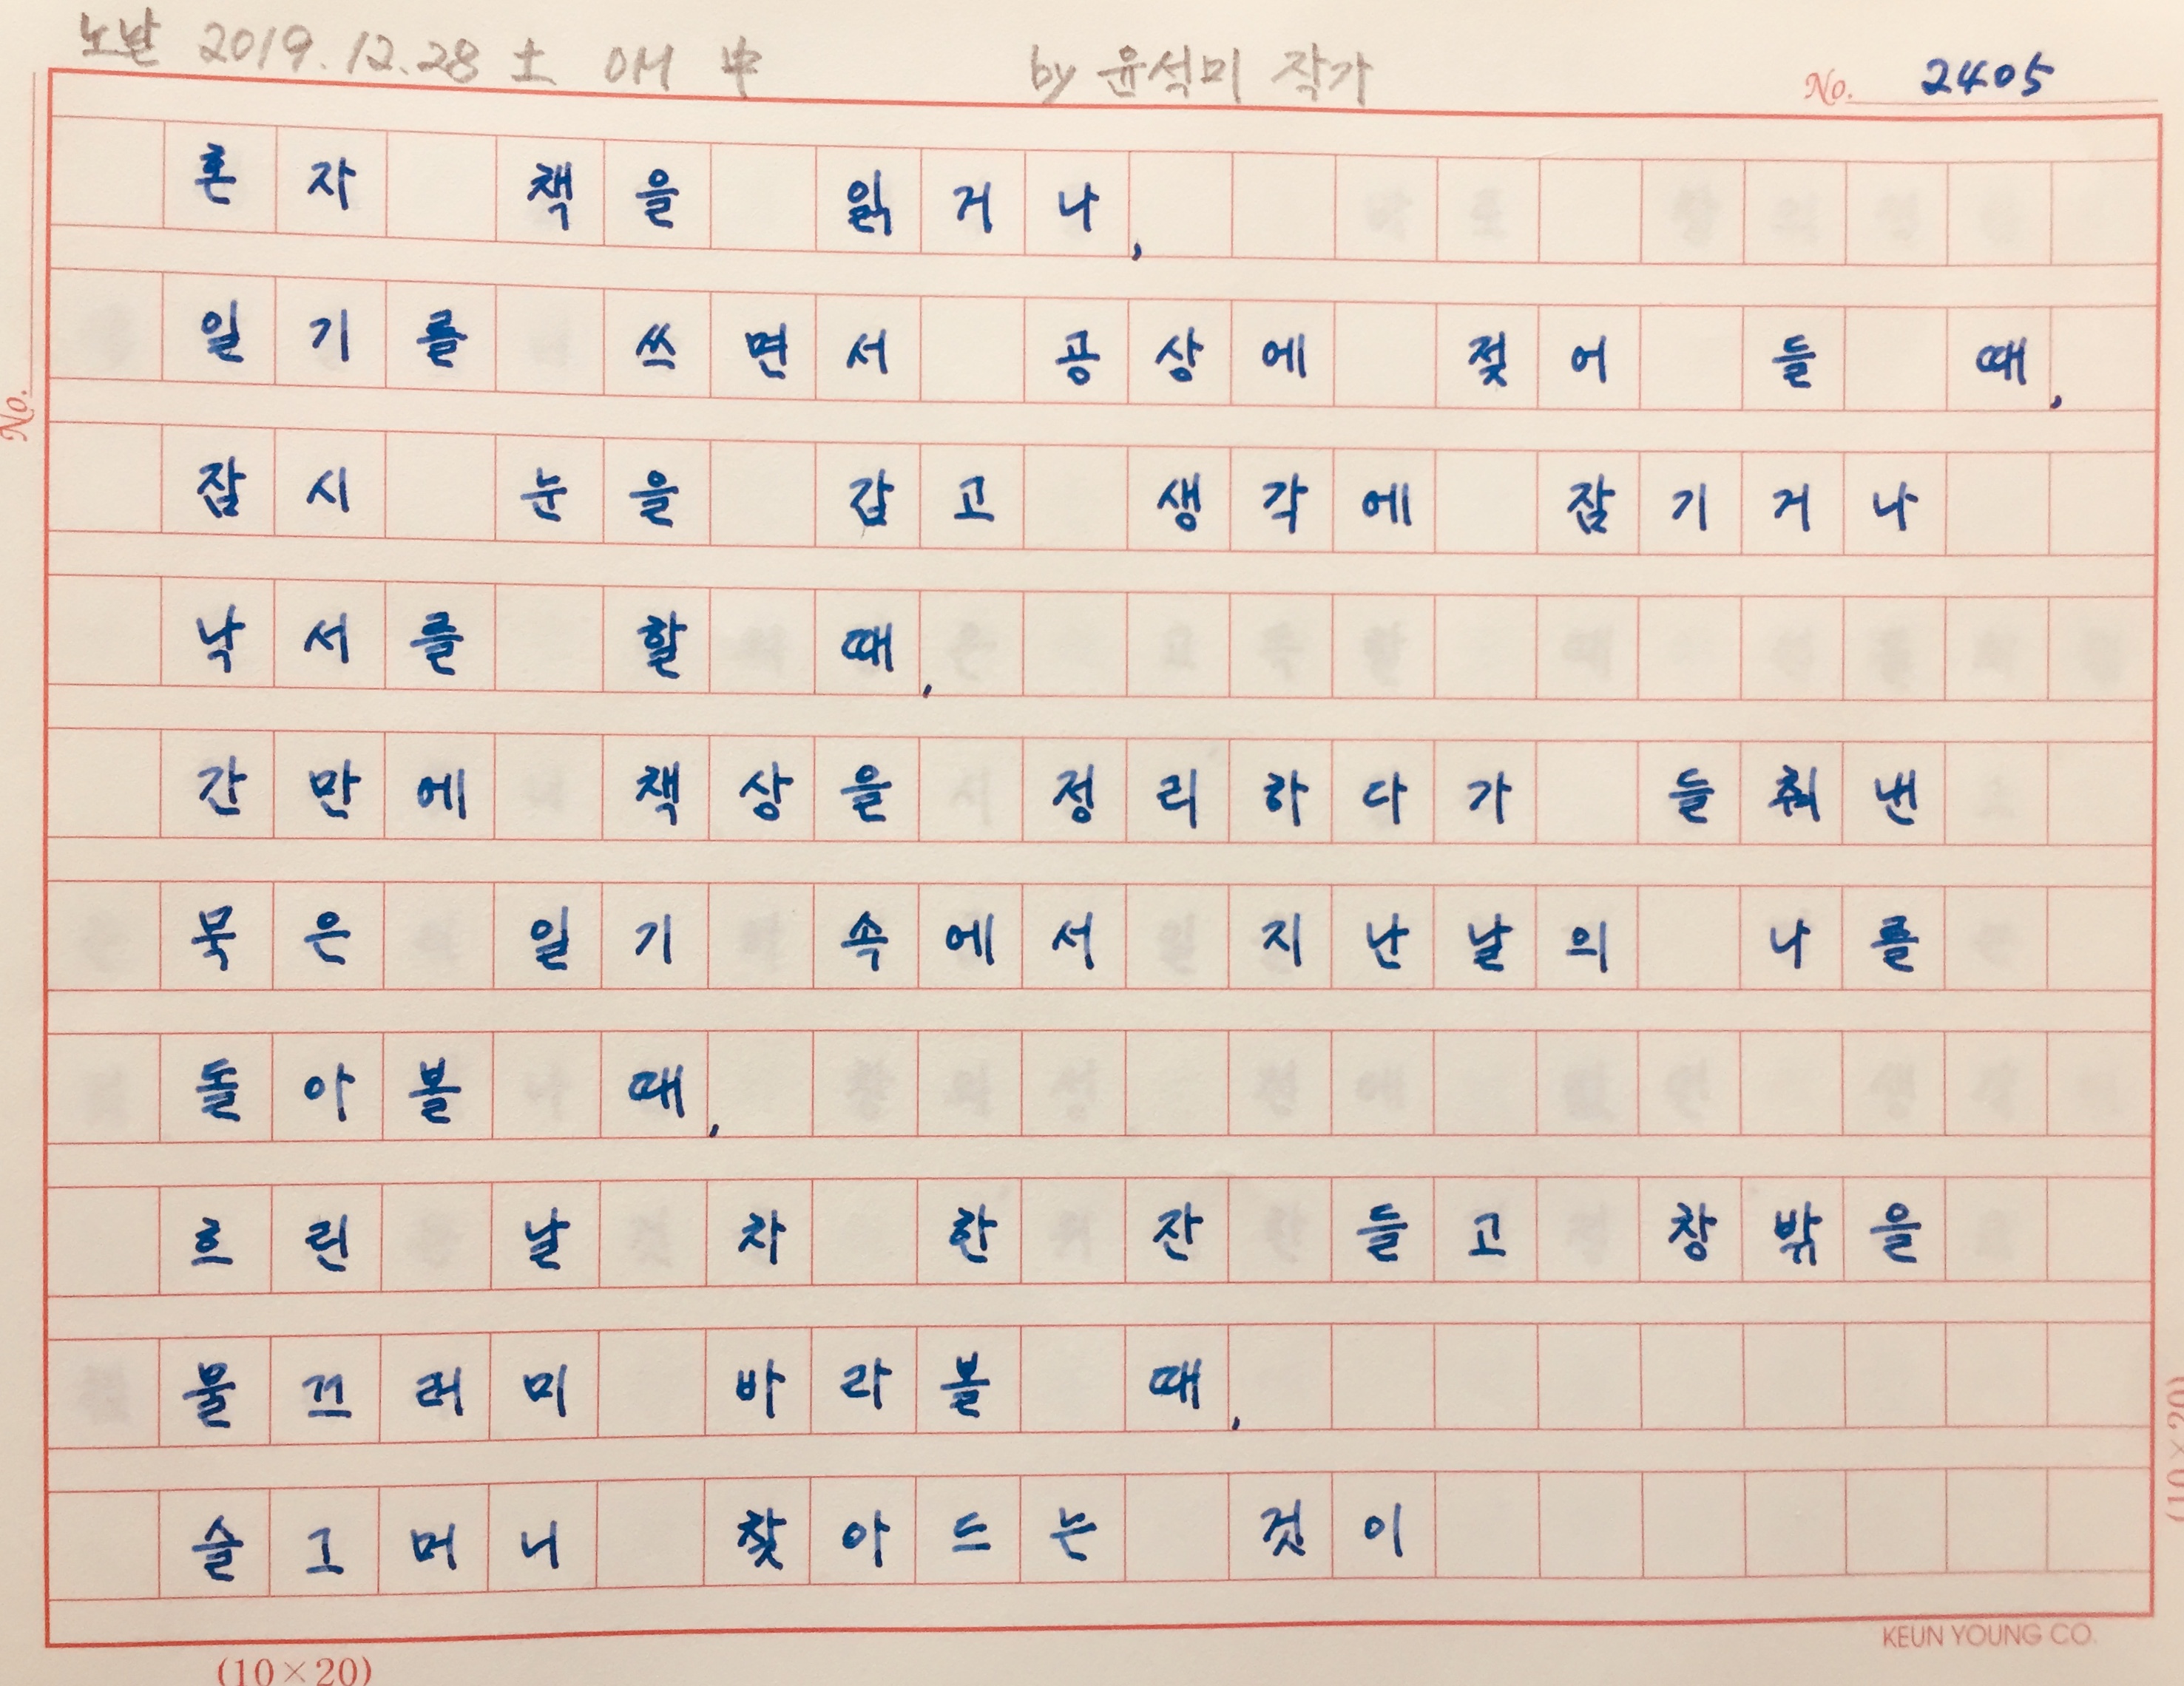 노날 2019.12.28 土 OM 中 by 윤석미 작가 No. 2405
혼자 책을 읽거나,
일기를 쓰면서 공상에 젖어 들 때,
잠시 눈을 감고 생각에 잠기거나
낙서를 할 때,
간만에 책상을 정리하다가 들춰낸
묵은 일기 속에서 지난날의 나를
돌아볼 때,
흐린 날 차 한 잔 들고 창밖을
물끄러미 바라볼 때,
슬그머니 찾아드는 것이
No.
(10×20)
KEUN YOUNG CO.
(10×20)